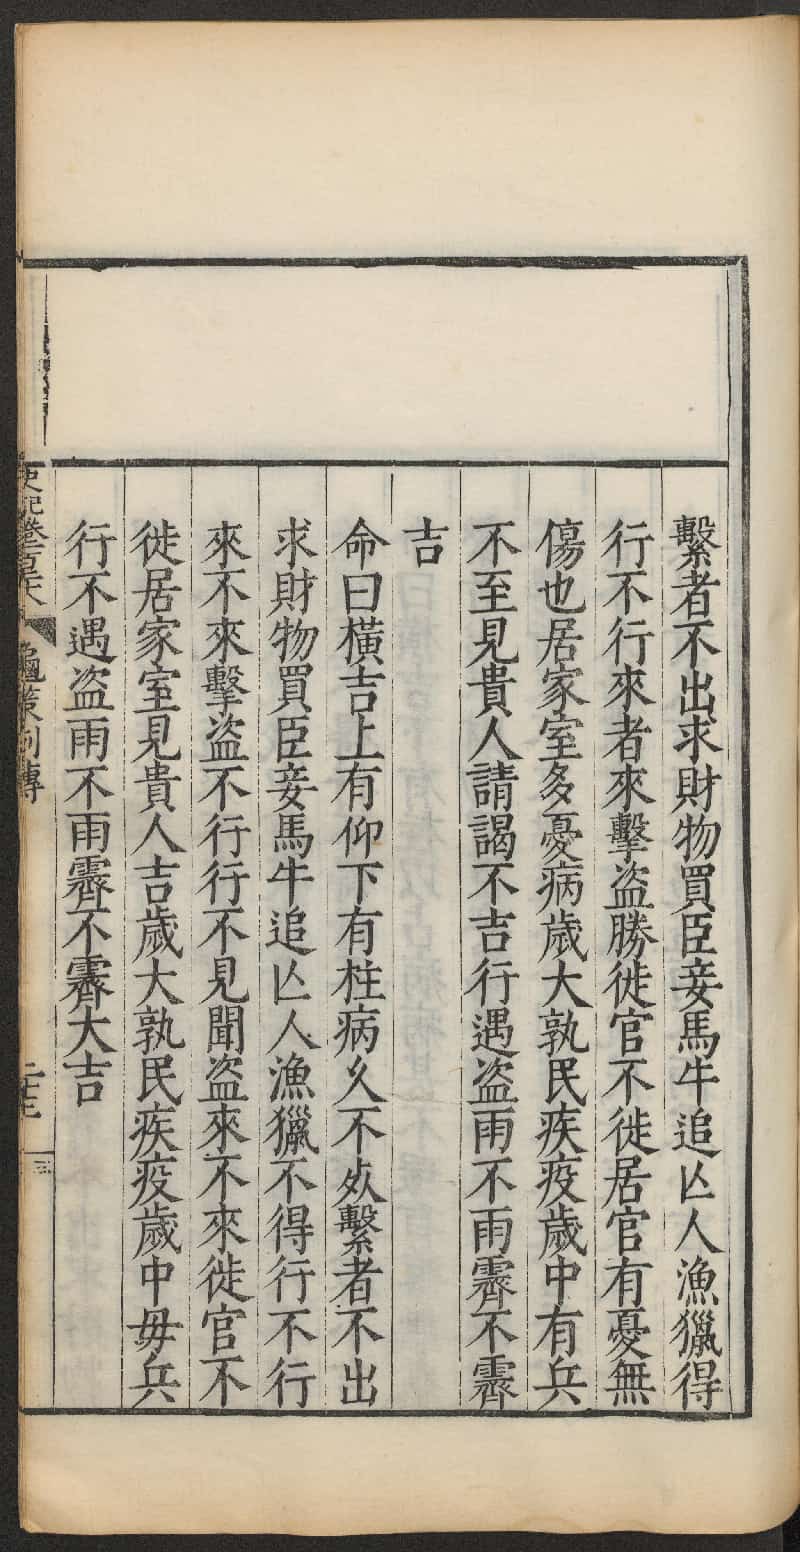 繫者不出求財物買臣妾馬牛追亾人漁獵得
行不行來者來擊盜勝徙官不徙居官有憂無
傷也居家室多憂病歲大孰民疾疫歲中有兵
不至見貴人請謁不吉行遇盜雨不雨霽不霽
吉
命曰橫吉上有仰下有柱病久不死繫者不出
求財物買臣妾馬牛追亾人漁獵不得行不行
來不來擊盜不行行不見聞盜來不來徙官不
徙居家室見貴人吉歲大孰民疾疫歲中毋兵
行不遇盜雨不雨霽不霽大吉
史記卷百
龜策列傳